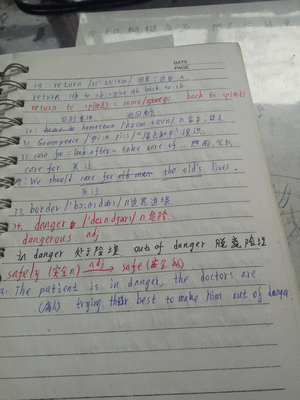 DATE
PAGE
19. return /rɪˈtɜːrn/ 回来; 返回 v.
return sth to sb = give sth back to sb
return to sp(地点) = come/go back to sp(地点)
30. hometown /ˈhəʊm taʊn/ n
31. Greenpeace /ˈɡriːn piːs/ "绿色和平" 组织
32. care for = look after = take care of
care for 关注
例: We should care for the old's lives.
关注
33. border /ˈbɔːdər/ n
34. danger /ˈdeɪndʒər/ n 危险
dangerous adj
in danger 处于险境 out of danger 脱离险境
safety (安全 n) adj → safe (安全的)
The patient is in danger, the doctors are
trying their best to make him out of danger